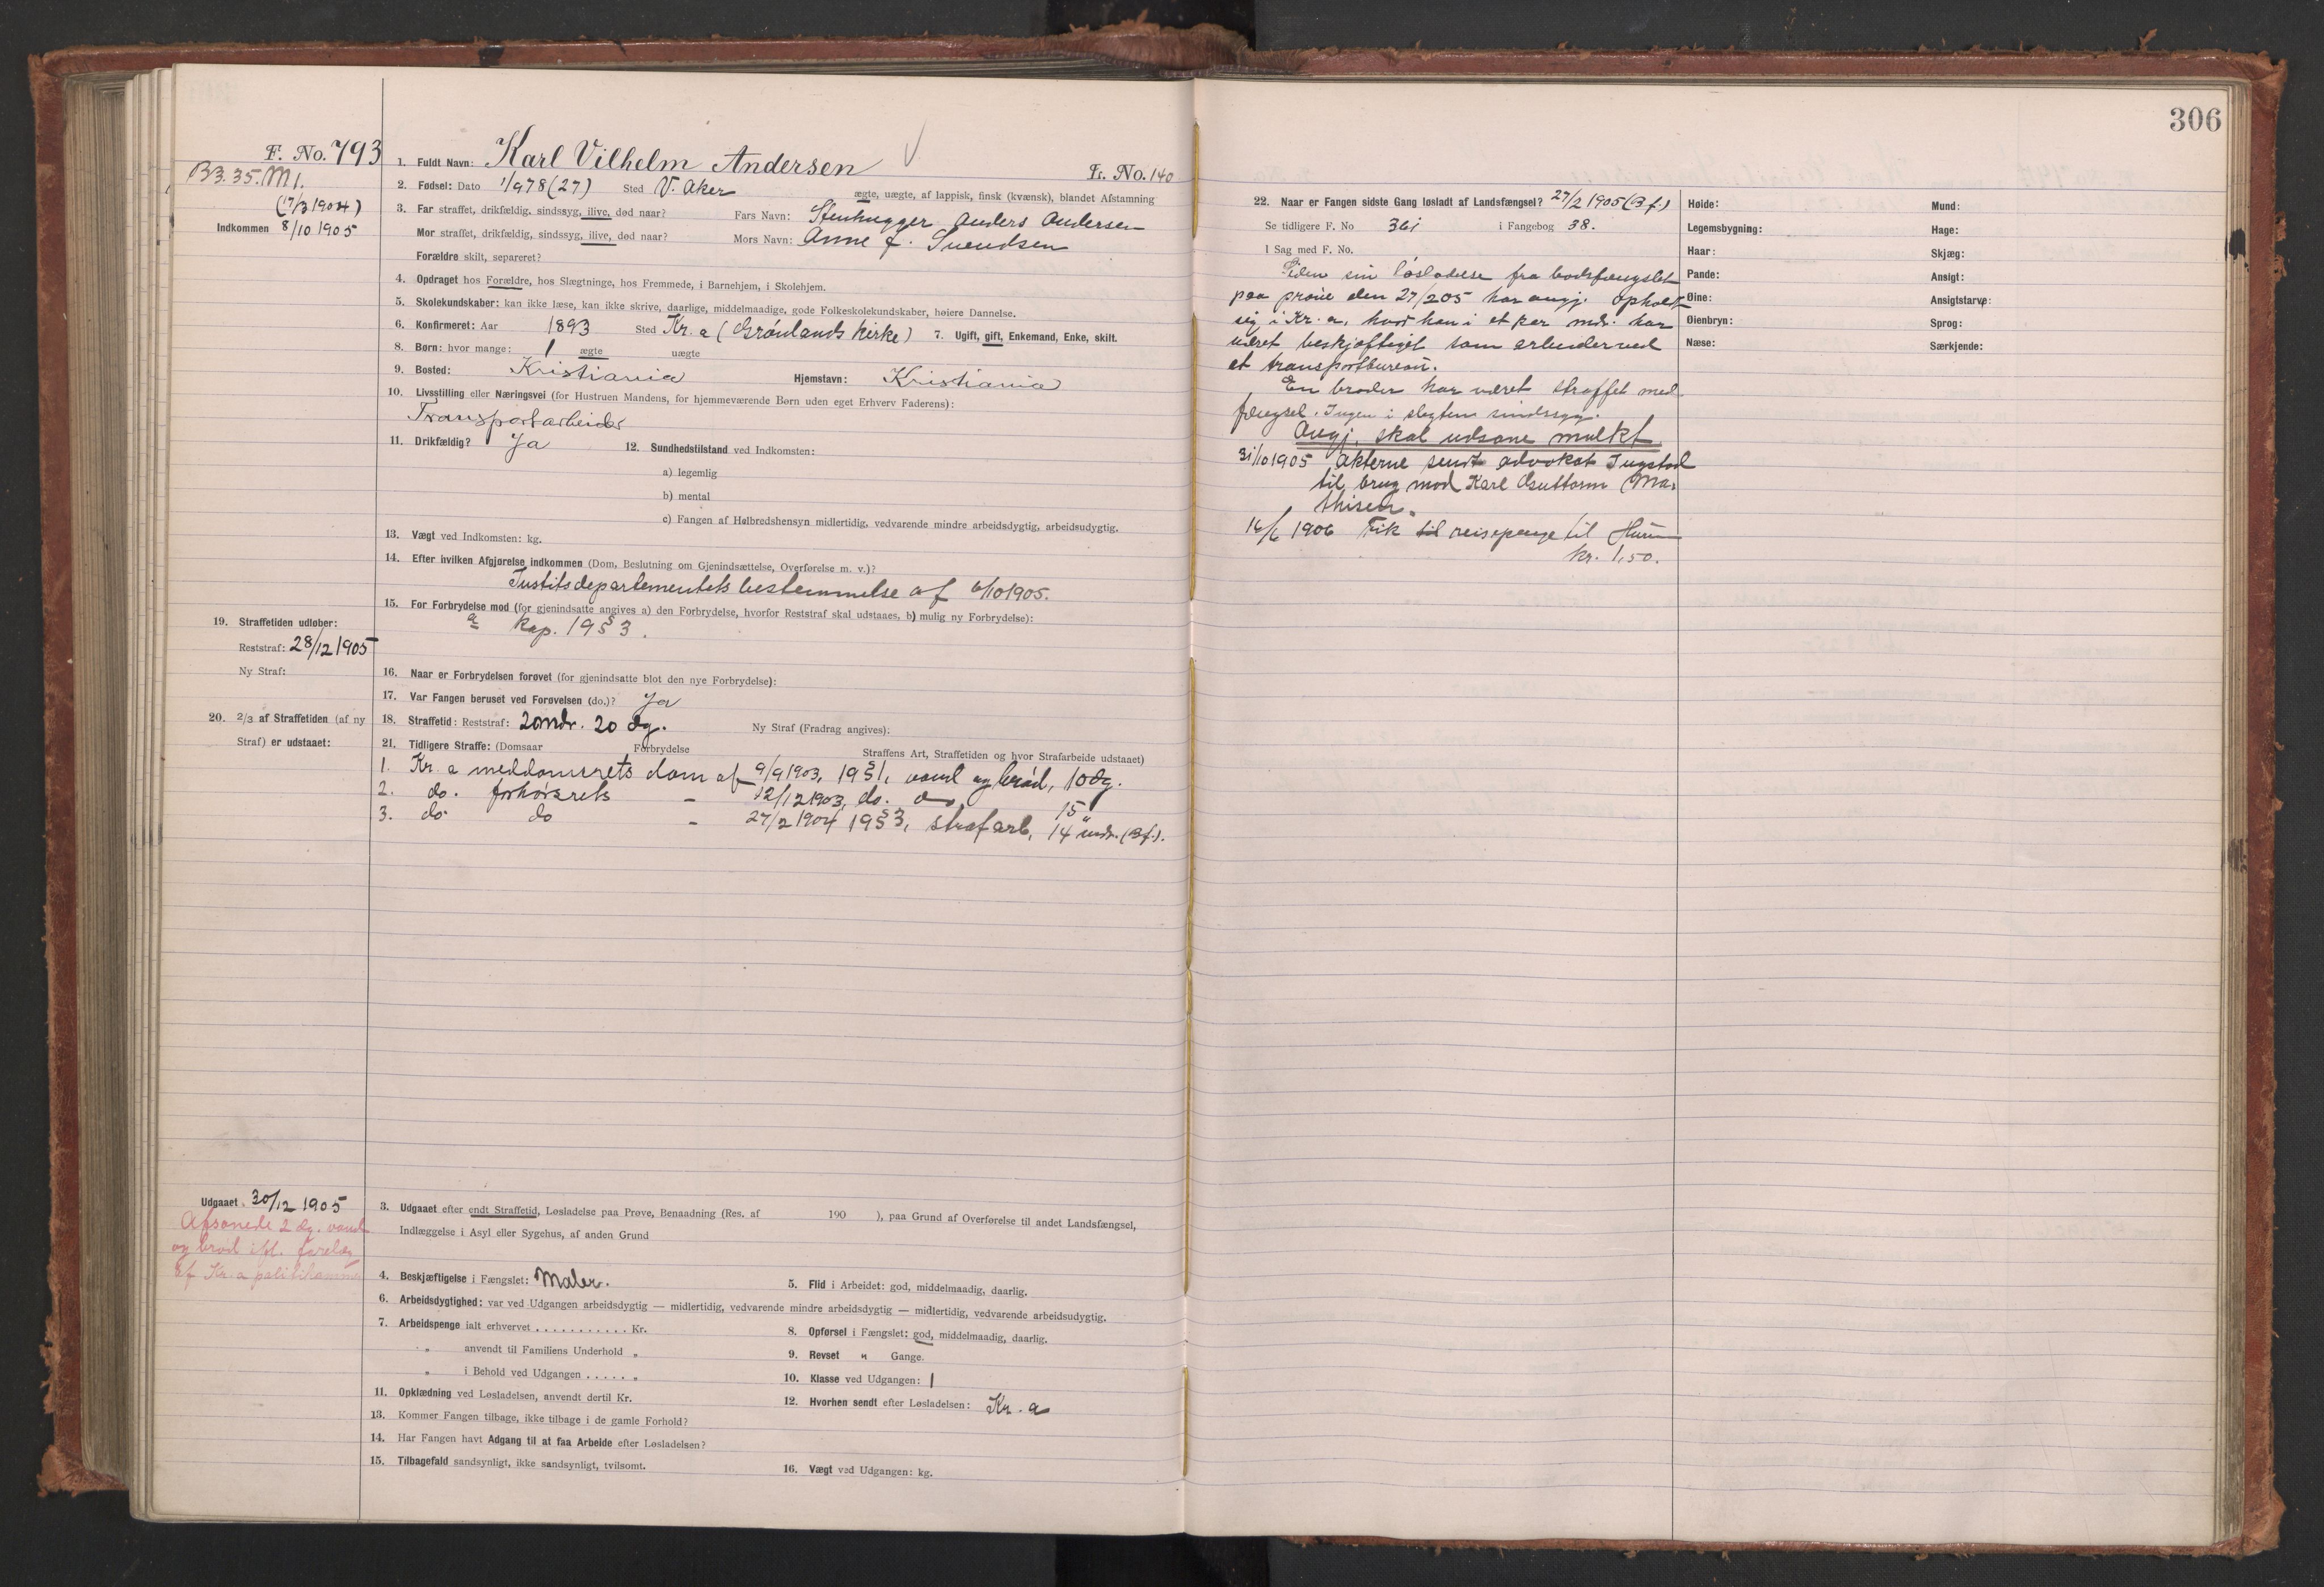 306
F. No. 793
B3. 35. M1.
(17/3 1904)
Indkommen 8/10 1905
1. Fuldt Navn: Karl Vilhelm Andersen
Fr. No. 140
2. Fødsel: Dato 1/9 78 (27) Sted V. Aker
ægte, uægte, af lappisk, finsk (kvænsk), blandet Afstamning
3. Far straffet, drikfældig, sindssyg, ilive, død naar? Fars Navn: Stenhugger Anders Andersen
Mor straffet, drikfældig, sindssyg, ilive, død naar? Mors Navn: Anne f. Svendsen
Forældre skilt, separeret?
4. Opdraget hos Forældre, hos Slægtninge, hos Fremmede, i Barnehjem, i Skolehjem.
5. Skolekundskaber: kan ikke læse, kan ikke skrive, daarlige, middelmaadige, gode Folkeskolekundskaber, høiere Dannelse.
6. Konfirmeret: Aar 1893 Sted Kr.a (Grønlands kirke) 7. Ugift, gift, Enkemand, Enke, skilt.
8. Børn: hvor mange: 1 ægte uægte
9. Bosted: Kristiania Hjemstavn: Kristiania
10. Livsstilling eller Næringsvei (for Hustruen Mandens, for hjemmeværende Børn uden eget Erhverv Faderens):
Transportarbeider
11. Drikfældig? Ja 12. Sundhedstilstand ved Indkomsten:
a) legemlig
b) mental
c) Fangen af Helbredshensyn midlertidig, vedvarende mindre arbeidsdygtig, arbeidsudygtig.
13. Vægt ved Indkomsten: kg.
14. Efter hvilken Afgjørelse indkommen (Dom, Beslutning om Gjenindsættelse, Overførelse m. v.)?
Justitsdepartementets bestemmelse af 6/10 1905.
15. For Forbrydelse mod (for gjenindsatte angives a) den Forbrydelse, hvorfor Reststraf skal udstaaes, b) mulig ny Forbrydelse):
a kap. 19 § 3.
19. Straffetiden udløber:
Reststraf: 28/12 1905
Ny Straf:
16. Naar er Forbrydelsen forøvet (for gjenindsatte blot den nye Forbrydelse):
17. Var Fangen beruset ved Forøvelsen (do.)? Ja
20. 2/3 af Straffetiden (af ny
Straf) er udstaaet:
18. Straffetid: Reststraf: 2 mdr. 20 dg. Ny Straf (Fradrag angives):
21. Tidligere Straffe: (Domsaar Forbrydelse Straffens Art, Straffetiden og hvor Strafarbeide udstaaet)
1. Kr.a meddomsrets dom af 9/9 1903, 19 § 1, vand og brød, 10 dg.
2. do. forhørsrets - 12/12 1903, do. do 15 "
3. do do - 27/2 1904 19 § 3, strafarb, 14 mdr. (Bf.).
Udgaaet 30/12 1905
Afsonede 2 dg. vand
og brød ifl. forelæg
af Kr.a politikammer
3. Udgaaet efter endt Straffetid, Løsladelse paa Prøve, Benaadning (Res. af 190 ), paa Grund af Overførelse til andet Landsfængsel,
Indlæggelse i Asyl eller Sygehus, af anden Grund
4. Beskjæftigelse i Fængslet: Maler. 5. Flid i Arbeidet: god, middelmaadig, daarlig.
6. Arbeidsdygtighed: var ved Udgangen arbeidsdygtig — midlertidig, vedvarende mindre arbeidsdygtig — midlertidig, vedvarende arbeidsudygtig.
7. Arbeidspenge ialt erhvervet . . . . . . . . . . . Kr. 8. Opførsel i Fængslet: god, middelmaadig, daarlig.
„ anvendt til Familiens Underhold „ 9. Revset " Gange.
„ i Behold ved Udgangen . . . . . „ 10. Klasse ved Udgangen: 1
11. Opklædning ved Løsladelsen, anvendt dertil Kr. 12. Hvorhen sendt efter Løsladelsen: Kr.a
13. Kommer Fangen tilbage, ikke tilbage i de gamle Forhold?
14. Har Fangen havt Adgang til at faa Arbeide efter Løsladelsen?
15. Tilbagefald sandsynligt, ikke sandsynligt, tvilsomt. 16. Vægt ved Udgangen: kg.
22. Naar er Fangen sidste Gang løsladt af Landsfængsel? 27/2 1905 (Bf.)
Se tidligere F. No 361 i Fangebog 38.
I Sag med F. No.
Siden sin løsladelse fra bodsfængslet
paa prøve den 27/2 05 har angj. opholdt
sig i Kr.a, hvor han i et par mdr. har
været beskjæftiget som arbeider ved
et transportbureau.
En broder har været straffet med
fængsel. Ingen i slegten sindssyg.
Angj. skal udsone mulkt
31/10 1905 Akterne sendt advokat Ingstad
til brug mod Karl Guttorm Ma-
thisen.
16/6 1906 Fik til reisepenge til Hurum
kr. 1,50.
Høide:
Legemsbygning:
Haar:
Pande:
Øine:
Øienbryn:
Næse:
Mund:
Hage:
Skjæg:
Ansigt:
Ansigtsfarve:
Sprog:
Særkjende: